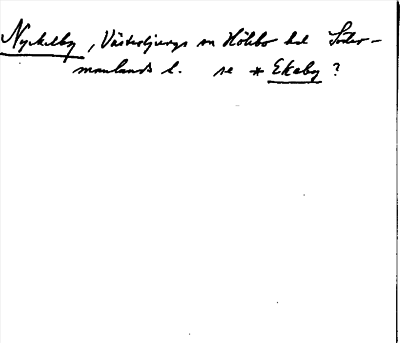 Nyckelby, Västerljungs sn Hölebo hd Söder-
manlands l. se * Ekeby ?